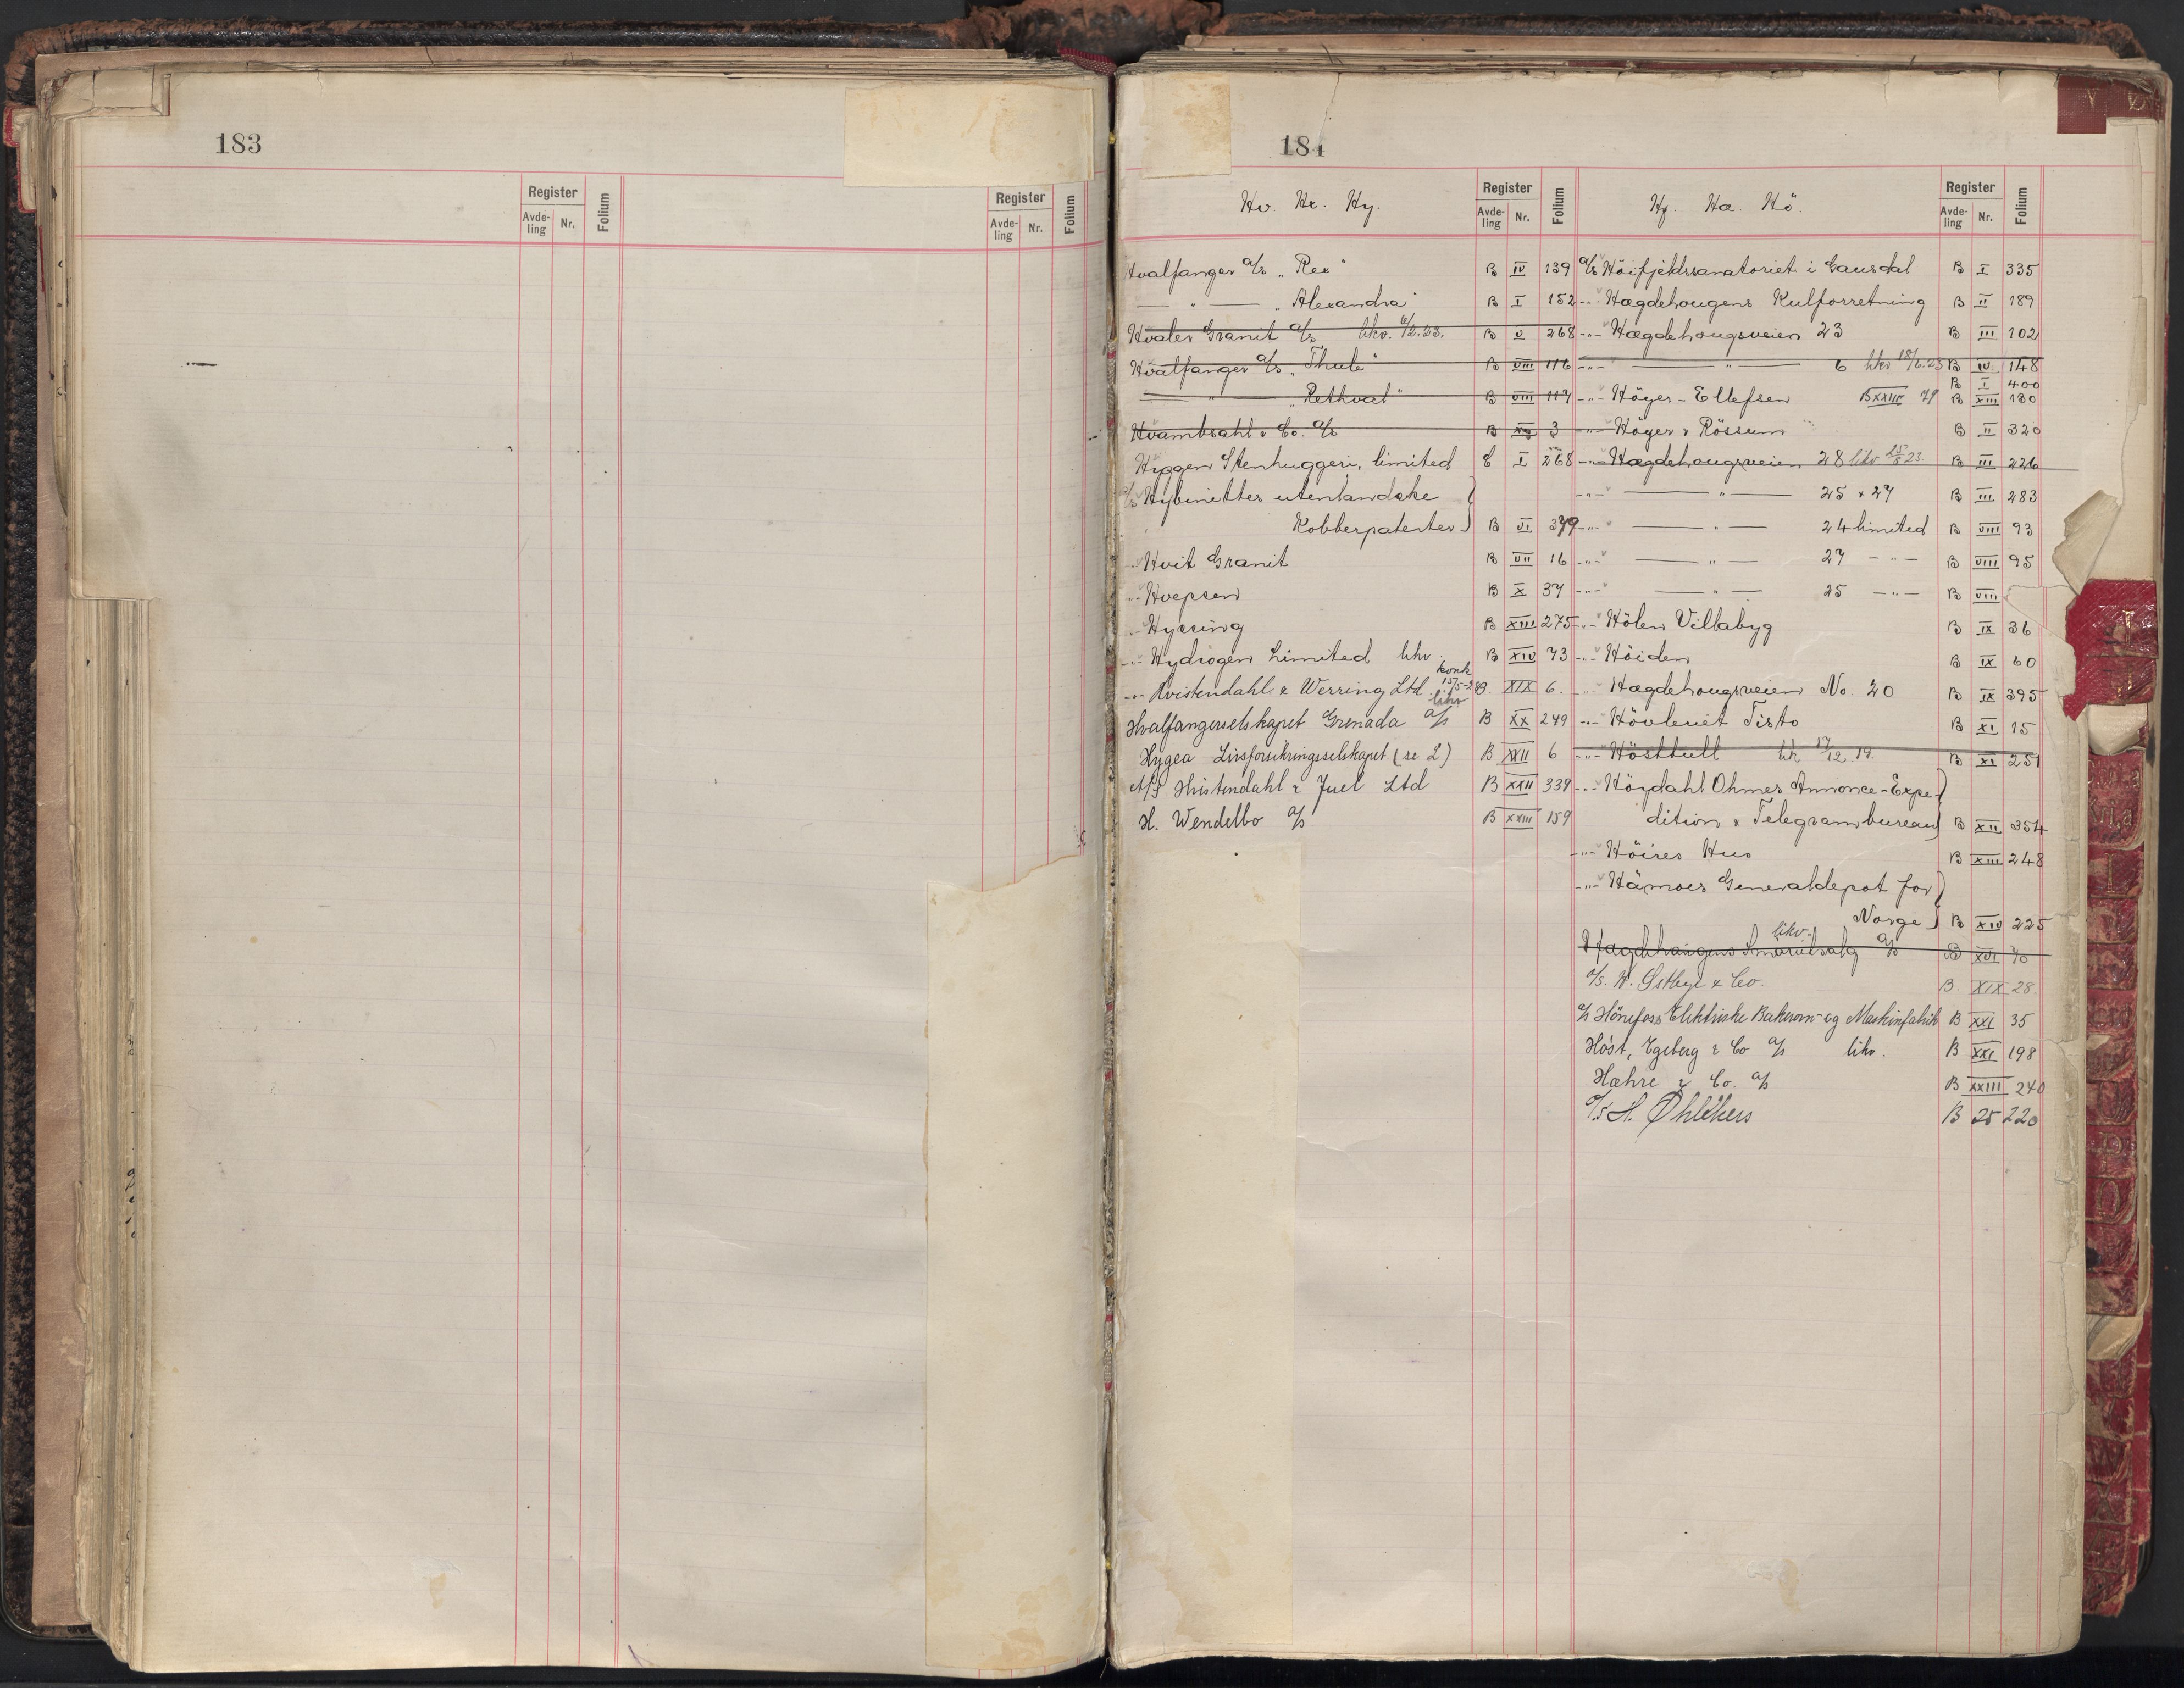 183
Register Folium Register Folium
Avde-ling Nr. Avde-ling Nr.
184
Hv. Hx. Hy. Register Avde-ling Nr. Folium
Hvalfanger A/s „Rex" B IV 139
— " — „Alexandra" B I 152
Hvaler Granit A/s likv. 6/2.23. B V 268
Hvalfanger A/s „Thule" B VIII 116
— " — „Rethval" B VIII 117
Hvambsahl & Co. A/s B 3
Hyggen Stenhuggeri, limited C I 268
A/s Hybinettes utenlandske
Kobberpatenter B VI 379
-"- Hvit Granit B VII 16
-"- Hvepsen B X 37
-"- Hyssing B XIII 275
-"- Hydrogen Limited likv. B XIV 73
konk 15/5-28
-"- Hvistendahl & Werring Ltd. likv B. XIX 6.
Hvalfangerselskapet Grenada A/s B XX 249
Hygea Livsforsikringsselskapet (se L) B XXII 6
A/S Hvistendahl & Juel Ltd B XXII 339
H. Wendelbo A/s B XXIII 159
Hj. Hæ. Hö. Register Avde-ling Nr. Folium
A/s Höifjeldssanatoriet i Gausdal B I 335
-"- Hægdehougens Kulforretning B II 189
-"- Hægdehougsveien 23 B III 102
-"- — " — 6 likv 18/6.23 B IV 148
B I 400
-"- Höyer-Ellefsen B XXIII 79 B XIII 180
-"- Höyer & Rössum B II 320
-"- Hægdehougsveien 28 likv 25/5 23. B III 226
-"- — " — 25 & 27 B III 283
-"- — " — 24 limited B VIII 93
-"- — " — 27 -"- B VIII 95
-"- — " — 25 -"- B VIII
-"- Hölen Villabyg B IX 36
-"- Höiden B IX 60
-"- Hægdehougsveien No. 20 B IX 395
-"- Hövleriet Tisto B XI 15
-"- Hösttull lik 17/12.19. B XI 251
-"- Höydahl Ohmes Annonce-Expe-
dition & Telegrambureau B XII 354
-"- Höires Hus B XIII 248
-"- Hämoes Generaldepot for
Norge B XIV 225
likv.
Hægdehaugens Smörutsalg A/s B XVI 70
A/s. H. Østbye & Co. B. XIX 28.
A/s Hönefoss Elektriske Bakerovn- og Maskinfabrik B XXI 35
Höst, Egeberg & Co A/s likv. B XXI 198
Hæhre & Co. A/s B XXIII 240
A/S H. Øhlckers B 25 220